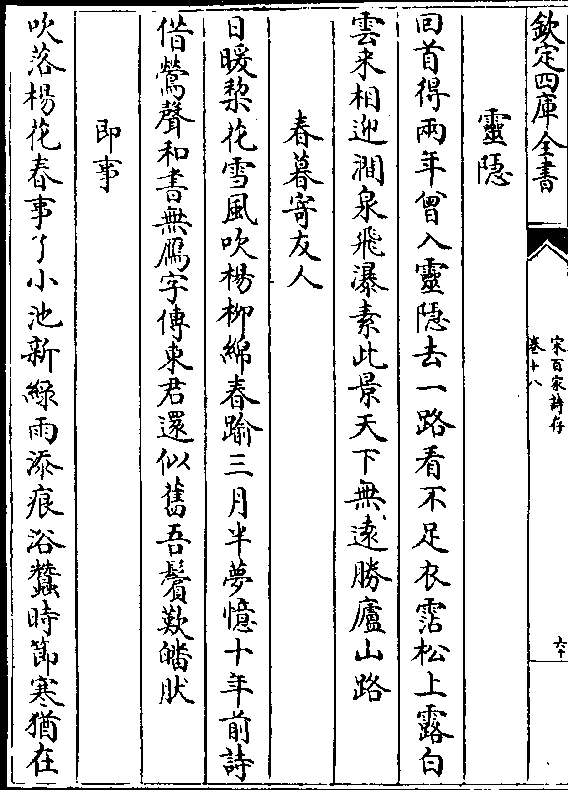 欽定四庫全書
宋百家詩存
卷十八
六十
靈隱
回首得兩年曾入靈隱去一路看不足衣霑松上露白
雲来相迎澗泉飛瀑素此景天下無遠勝廬山路
春暮寄友人
日暖梨花雪風吹楊柳綿春踰三月半夢憶十年前詩
借鶯聲和書無鴈字傳東君還似舊吾鬢歎皤肰
即事
吹落楊花春事了小池新緑雨添痕浴蠶時節寒猶在